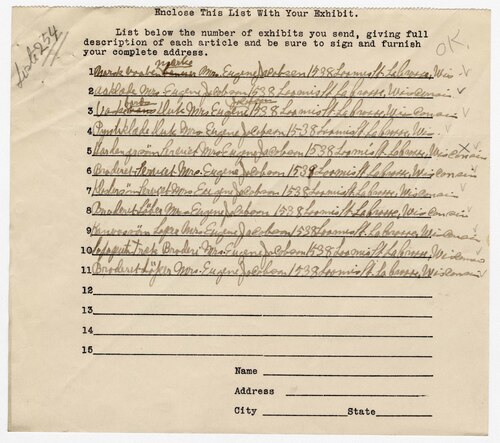 Enclose This List With Your Exhibit.
OK.
List 254
List below the number of exhibits you send, giving full
description of each article and be sure to sign and furnish
your complete address.
1 Mrs. Eugene Jacobson 1538 Loomis St. La Crosse, Wis
2 Mrs. Eugene Jacobson 1538 Loomis St. La Crosse, Wisconsin
3 Duk Mrs. Eugene Jacobson 1538 Loomis St. La Crosse, Wisconsin
4 Duk Mrs. Eugene Jacobson 1538 Loomis St. La Crosse, Wis.
5 Hardangersöm Serviet Mrs. Eugene Jacobson 1538 Loomis St. La Crosse, Wisconsin
6 Broderet Serviet Mrs. Eugene Jacobson 1538 Loomis St. La Crosse, Wisconsin
7 Serviet Mrs. Eugene Jacobson 1538 Loomis St. La Crosse, Wisconsin
8 Broderet Löber Mrs. Eugene Jacobson 1538 Loomis St. La Crosse, Wisconsin
9 Mrs. Eugene Jacobson 1538 Loomis St. La Crosse, Wisconsin
10 Broderi Mrs. Eugene Jacobson 1538 Loomis St. La Crosse, Wisconsin
11 Broderet Mrs. Eugene Jacobson 1538 Loomis St. La Crosse, Wisconsin
12
13
14
15
Name
Address
City State